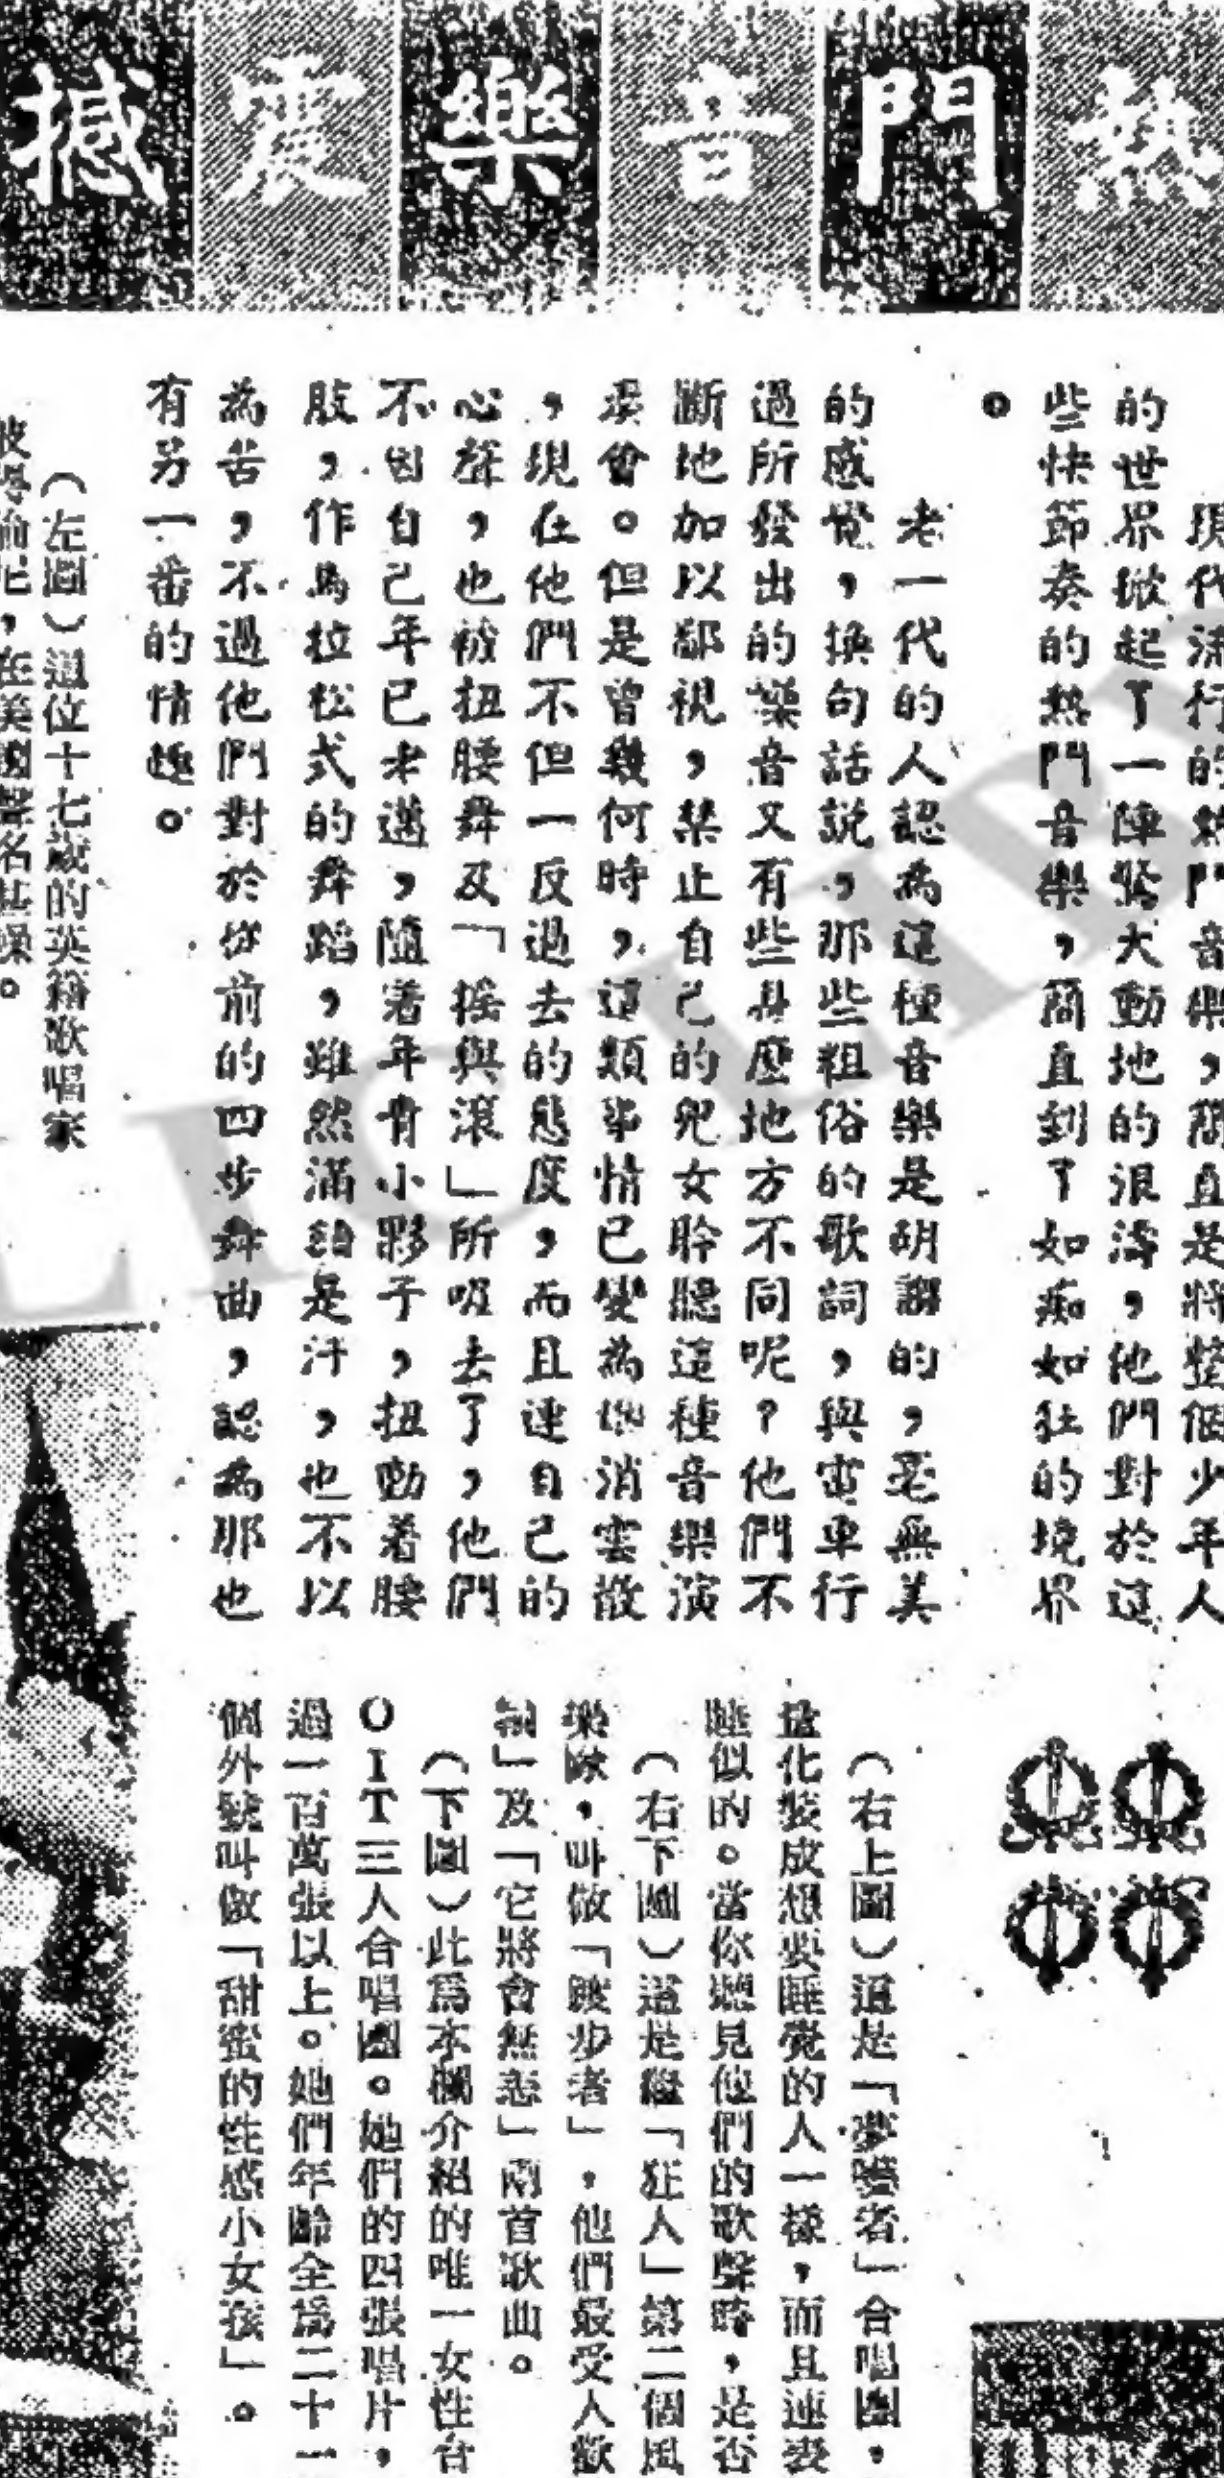 熱門音樂震撼
現代流行的熱門音樂，簡直是將整個少年人
的世界掀起了一陣驚天動地的浪濤，他們對於這
些快節奏的熱門音樂，簡直到了如痴如狂的境界
。
老一代的人認為這種音樂是胡謅的，毫無美
的感覺，換句話說，那些粗俗的歌詞，與電車行
過所發出的噪音又有些甚麼地方不同呢？他們不
斷地加以鄙視，禁止自己的兒女聆聽這種音樂演
奏會。但是曾幾何時，這類事情已變為烟消雲散
，現在他們不但一反過去的態度，而且連自己的
心聲，也被扭腰舞及「搖與滾」所吸去了，他們
不因自己年已老邁，隨着年青小夥子，扭動着腰
肢，作馬拉松式的舞蹈，雖然滿頭是汗，也不以
為苦，不過他們對於從前的四步舞曲，認為那也
有另一番的情趣。
（左圖）這位十七歲的英籍歌唱家
，在美國聲名甚噪。
（右上圖）這是「夢囈者」合唱團，
化裝成想要睡覺的人一樣，而且連
睡似的。當你聽見他們的歌聲時，是否
（右下圖）這是繼「狂人」第二個風
，叫做「跛步者」，他們最受人歡
」及「它將會無恙」兩首歌曲。
（下圖）此爲本欄介紹的唯一女性合
OIT三人合唱團。她們的四張唱片，
過一百萬張以上。她們年齡全爲二十一
個外號叫做「甜蜜的性感小女孩」。
LIC LIB